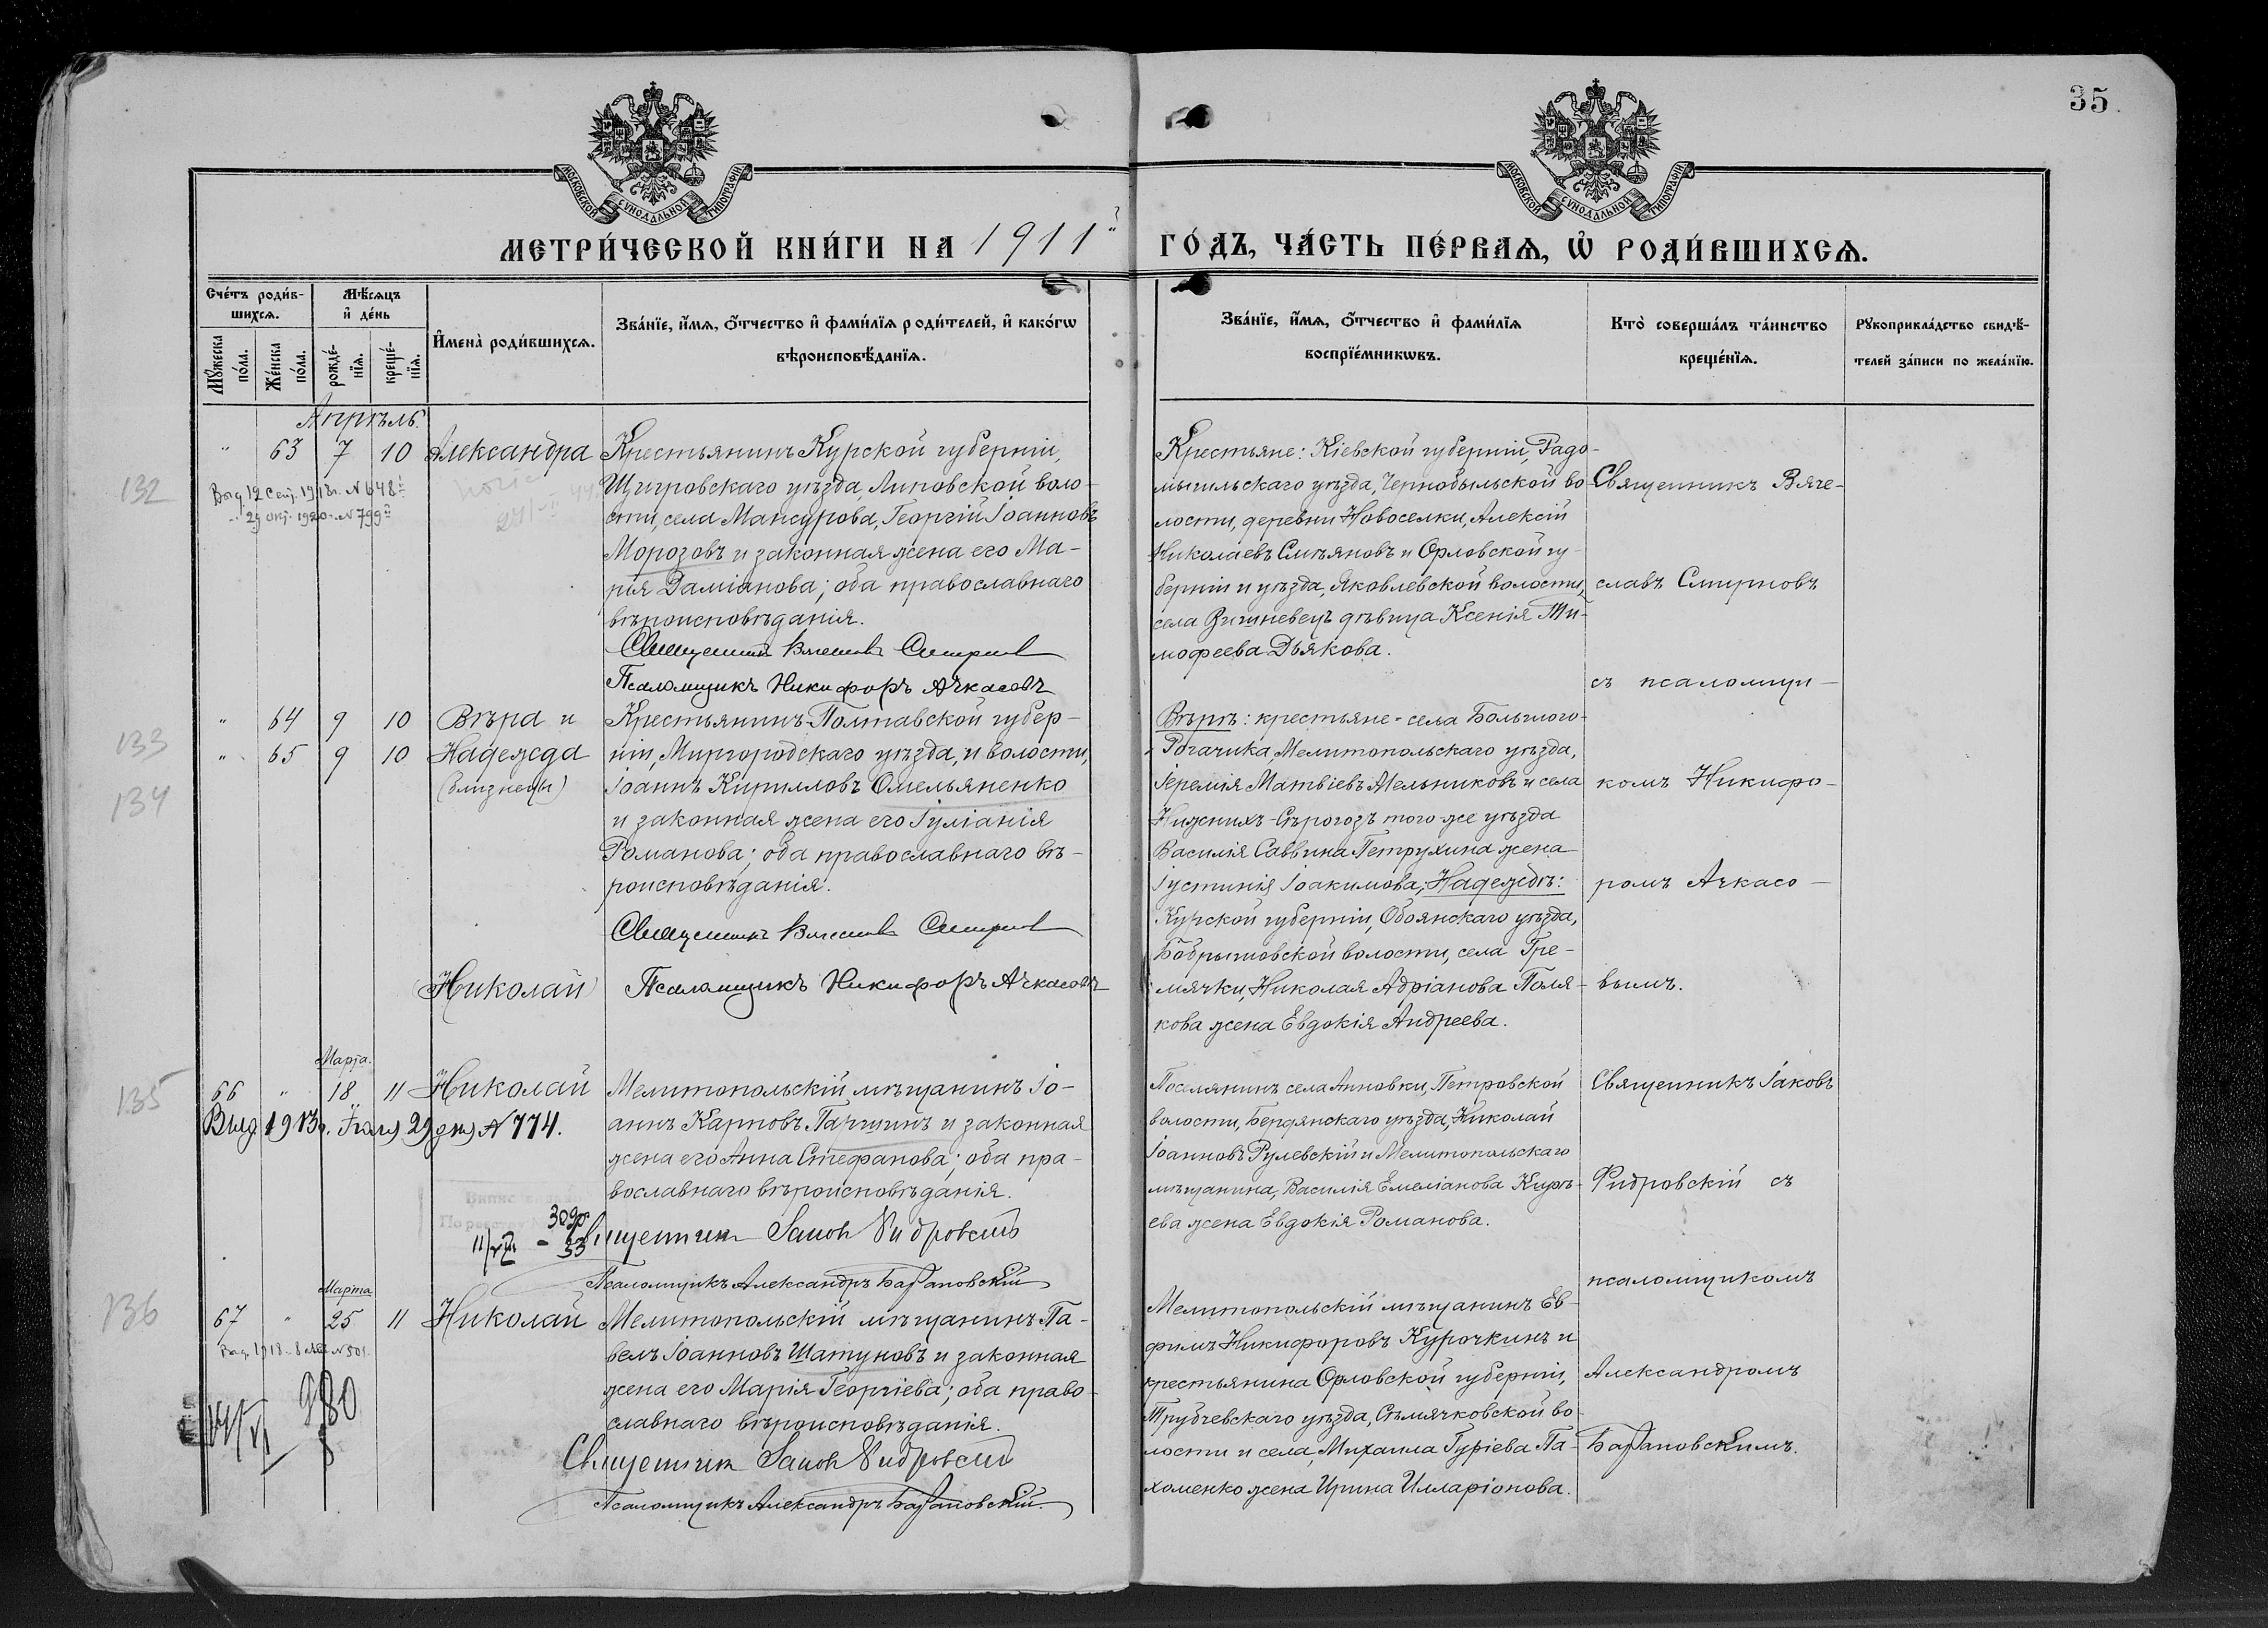 35
МОСКОВСКОЙ СѴНОДАЛЬНОЙ ТИПОГРАФІИ
МОСКОВСКОЙ СѴНОДАЛЬНОЙ ТИПОГРАФІИ
МЕТРИ́ЧЕСКОЙ КНИ́ГИ НА 1911й ГО́ДЪ, ЧА́СТЬ ПЕ́РВАѦ, Ѡ РОДИ́ВШИХСѦ.
Сче́тъ роди́в-
шихсѧ.
Мꙋ́жеска по́ла.
Же́нска по́ла.
Мѣ́сѧцъ
и҆ де́нь
рожде́-
нїѧ.
креще́-
нїѧ.
И҆мена̀ роди́вшихсѧ.
Зва́нїе, и҆́мѧ, ѻ҆́тчество и҆ фами́лїѧ роди́телей, и҆ како́гѡ
вѣроисповѣ́данїѧ.
Зва́нїе, и҆́мѧ, ѻ҆́тчество и҆ фами́лїѧ
воспрїе́мникѡвъ.
Кто̀ соверша́лъ та́инство
креще́нїѧ.
Рꙋкоприкла́дство свидѣ́-
телей за́писи по жела́нїю.
Апрѣль.
132
" 63 7 10 Александра
Выд. 12 Сент. 1913г. № 648й
" 29 окт. 1920 № 799й
Крестьянинъ Курской губерніи,
Щигровскаго уѣзда, Липовской воло-
сти, села Мансурова, Георгій Іоанновъ
Морозовъ и законная жена его Ма-
рія Даміанова; оба православнаго
вѣроисповѣданія.
Священникъ Вячеславъ Смирновъ
Псаломщикъ Никифоръ Ачкасовъ
Крестьяне: Кіевской губерніи, Радо-
мысльскаго уѣзда, Чернобыльской во-
лости, деревни Новоселки, Алексій
Николаевъ Смѣяновъ и Орловской гу-
берніи и уѣзда, Яковлевской волости,
села Вишневецъ дѣвица Ксенія Ти-
мофеева Дьякова.
Священникъ Вяче-
славъ Смирновъ
съ псаломщи-
комъ Никифо-
ромъ Ачкасо-
вымъ.
133
134
" 64 9 10 Вѣра и
" 65 9 10 Надежда
(близнецы)
Крестьянинъ Полтавской губер-
ніи, Миргородскаго уѣзда, и волости,
Іоаннъ Кирилловъ Омельяненко
и законная жена его Іуліанія
Романова; оба православнаго вѣ-
роисповѣданія.
Священникъ Вячеславъ Смирновъ
(Николай)
Псаломщикъ Никифоръ Ачкасовъ
Вѣрѣ: крестьяне - села Большого-
Рогачика, Мелитопольскаго уѣзда,
Іеремія Матвіевъ Мельниковъ и села
Нижнихъ-Сѣрогозъ того-же уѣзда
Василія Саввина Петрухина жена
Іустинія Іоакимова; Надеждѣ:
Курской губерніи, Обоянскаго уѣзда,
Бобрышовской волости, села Гре-
мячки, Николая Адріанова Поля-
кова жена Евдокія Андреева.
135
Марта.
66 " 18 11 Николай
Выд 1913г. Іюля 29 дня № 774.
Мелитопольскій мѣщанинъ Іо-
аннъ Карповъ Паршинъ и законная
жена его Анна Стефанова; оба пра-
вославнаго вѣроисповѣданія.
Священникъ Іаковъ Фидровскій
Псаломщикъ Александръ Барановскій
Поселянинъ села Анновки, Петровской
волости, Бердянскаго уѣзда, Николай
Іоанновъ Рулевскій и Мелитопольскаго
мѣщанина, Василія Емеліанова Кирѣ-
ева жена Евдокія Романова.
Священникъ Іаковъ
Фидровскій съ
псаломщикомъ
Александромъ
Барановскимъ.
136
Марта
67 " 25 11 Николай
980
Мелитопольскій мѣщанинъ Па-
велъ Іоанновъ Шатуновъ и законная
жена его Марія Георгіева; оба право-
славнаго вѣроисповѣданія.
Священникъ Іаковъ Фидровскій
Псаломщикъ Александръ Барановскій.
Мелитопольскій мѣщанинъ Ев-
фимъ Никифоровъ Курочкинъ и
крестьянина Орловской губерніи,
Трубчевскаго уѣзда, Сѣмячковской во-
лости и села, Михаила Гуріева Па-
хоменко жена Ирина Илларіонова.